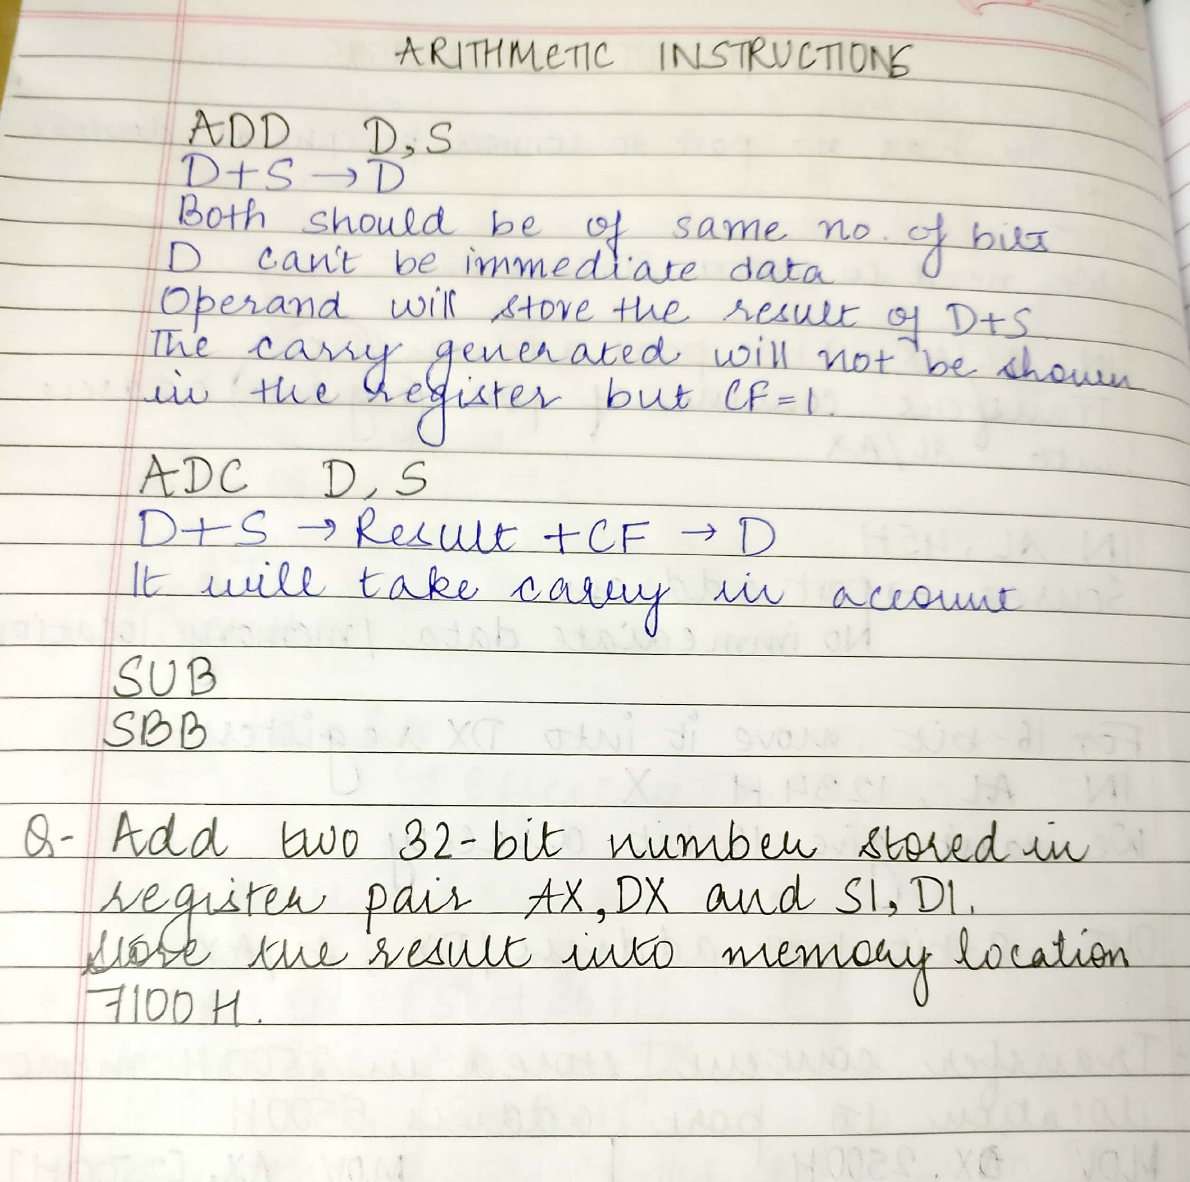 ARITHMETIC INSTRUCTIONS
ADD D, S
D+S → D
Both should be of same no. of bits
D can't be immediate data
Operand will store the result of D+S
The carry generated will not be shown
in the register but CF=1.
ADC D, S
D+S → Result +CF → D
It will take carry in account
SUB
SBB
Q- Add two 32-bit number stored in
register pair AX, DX and SI, DI.
Store the result into memory location
7100 H.